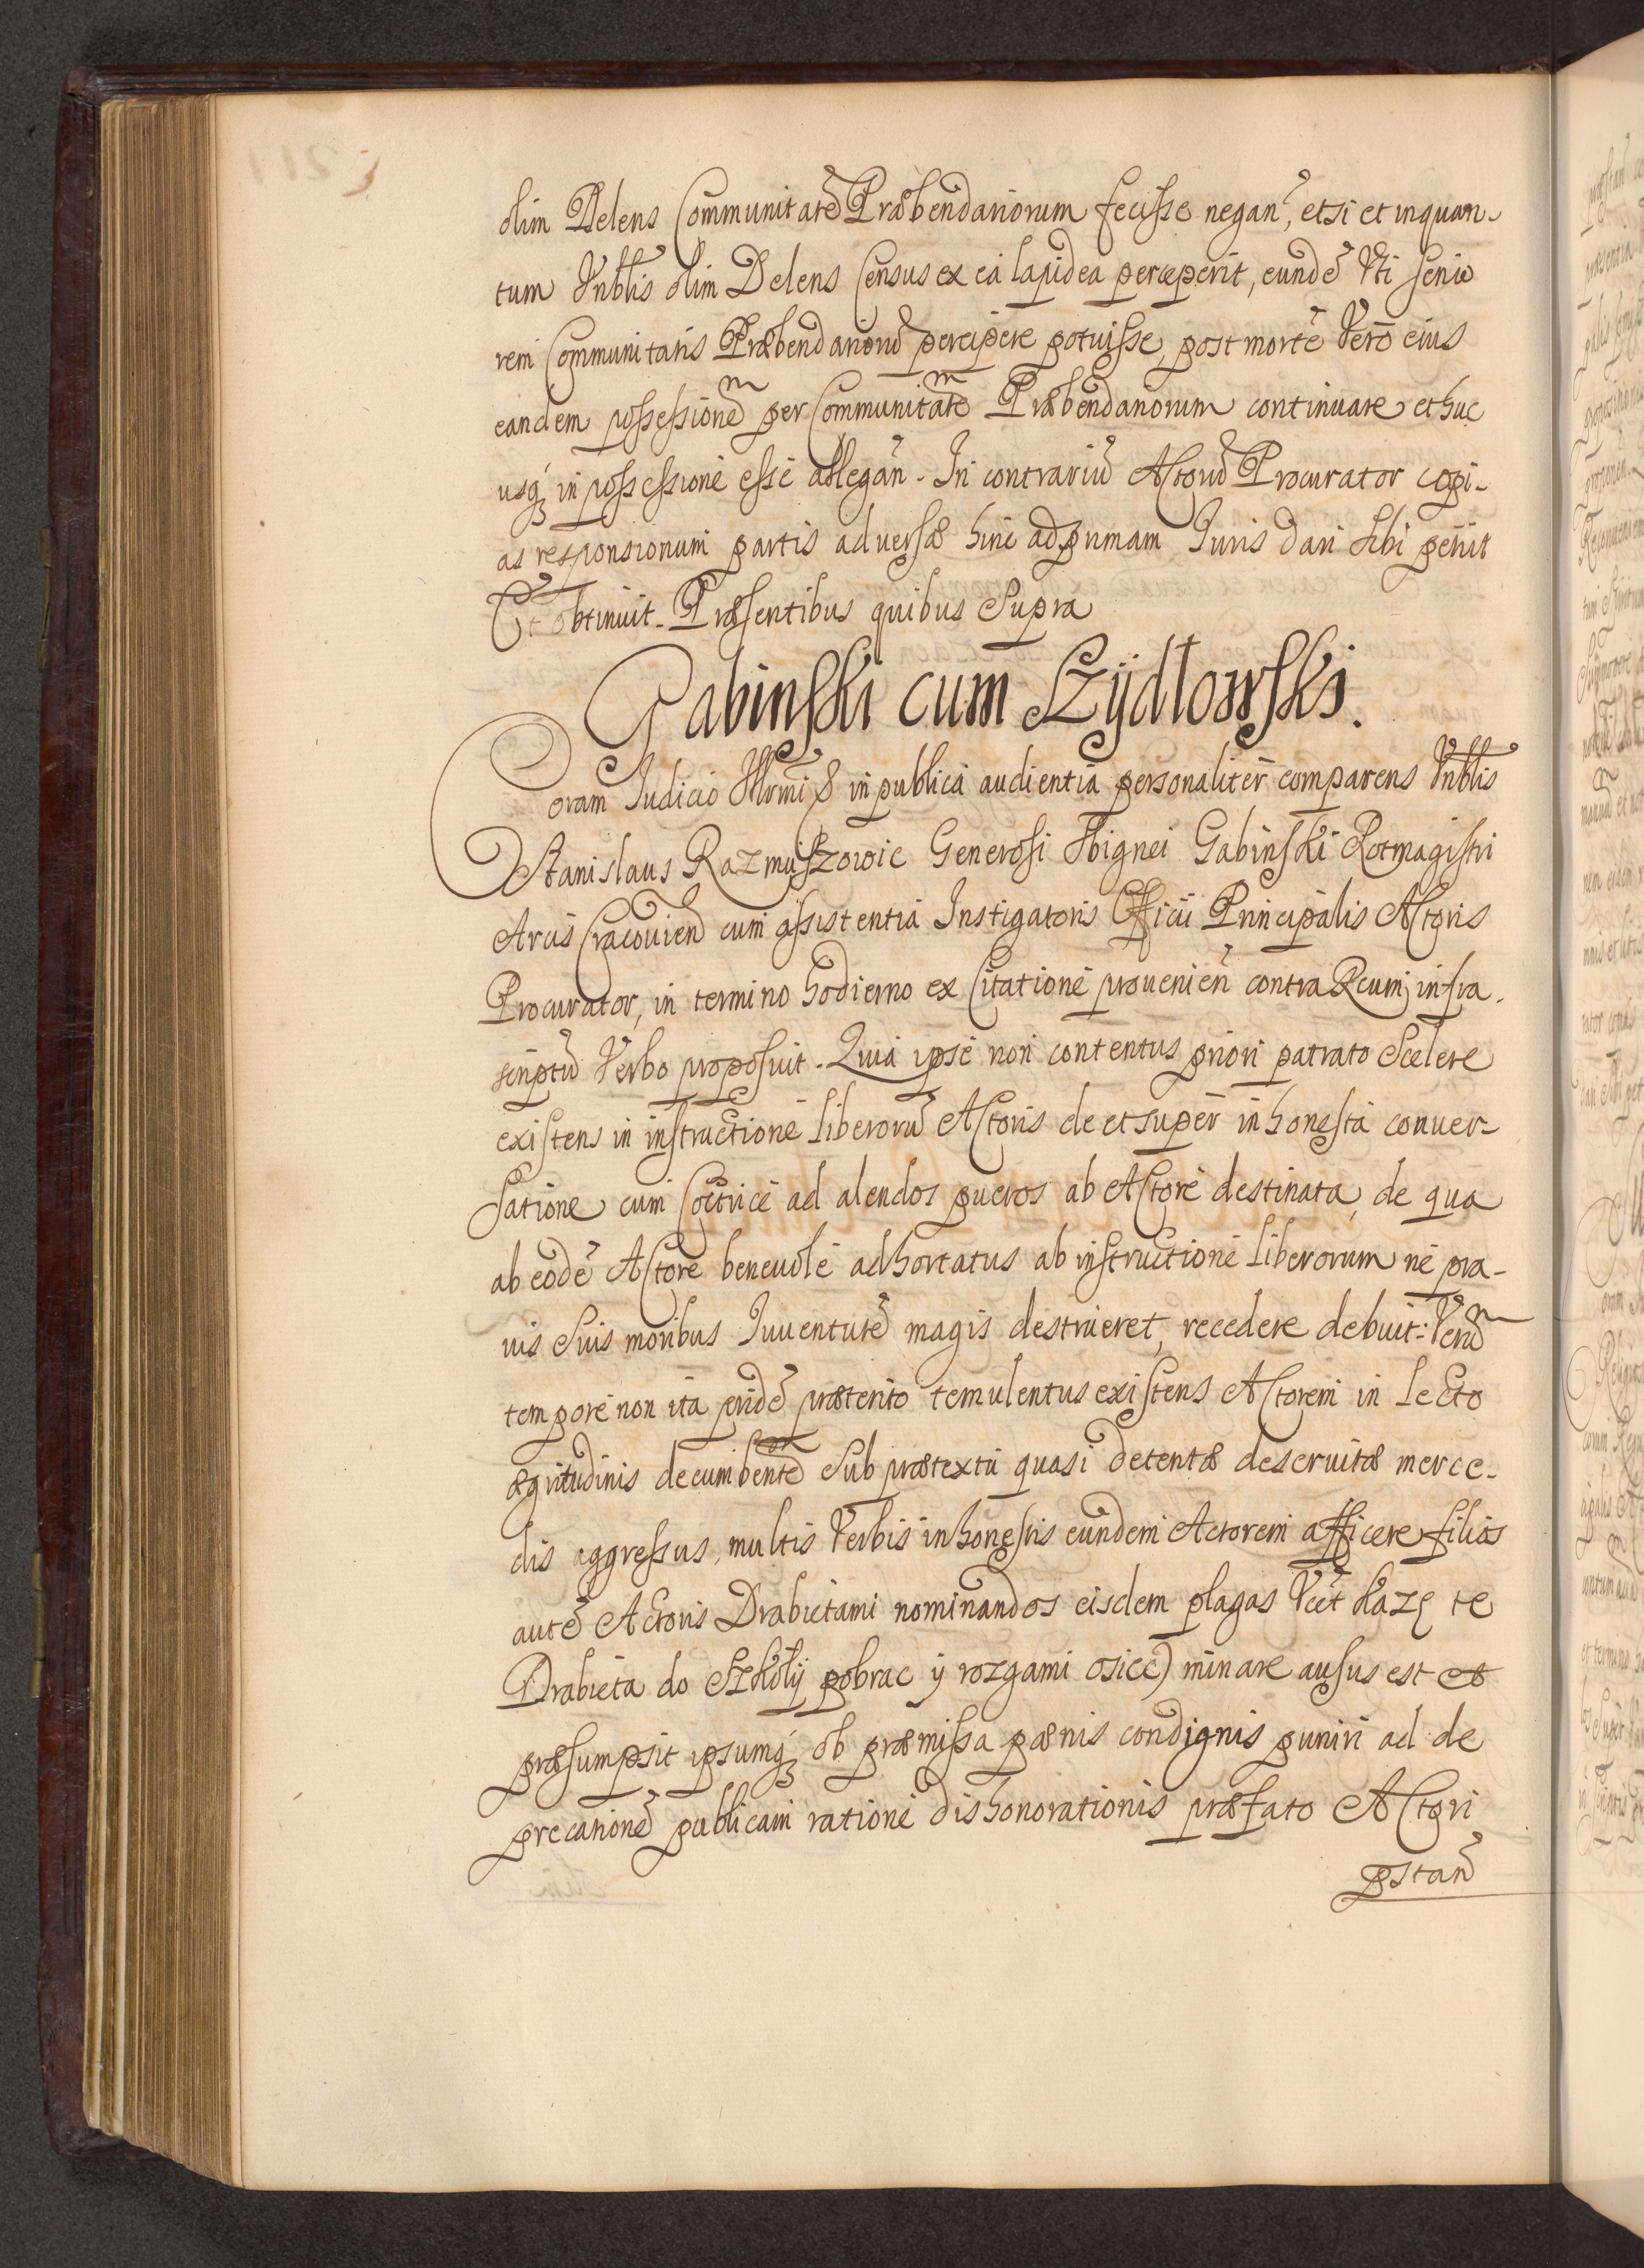 olim Delens Communitatē Præbendariorum fecisse negan̄, etsi et inquan-
tum Vnblis olim Delens Census ex ea lapidea perceperit, eundē Vti senio
rem Communitatis Præbendariorū percipere potuisse, post mortē Vero eius
eandem possessionem per Communitatem Præbendariorum continuare et huc
usq, in possessione esse allegan̄. In contrariū Actorū Procurator copi-
as responsionum partis aduersæ hinc ad primam Iuris dari sibi petiit
Et obtinuit. Præsentibus quibus Supra
Gabinski cum Szÿdłowski.
Coram Iudicio & in publica audientia personaliter comparens Vnblis
Stanislaus Razmuszowic Generosi Zbignei Gabinski Rotmagistri
Arcis Cracouien̄ cum assistentia Instigatoris Officii Principalis Actoris
Procurator, in termino hodierno ex Citatione prouenien̄ contra Reum infra-
scriptū Verbo proposuit. Quia ipse non contentus priori patrato Scelere
existens in instructione liberorū Actoris de et super inhonesta conuer-
satione cum Coctrice ad alendos pueros ab Actore destinata, de qua
ab eodē Actore beneuole adhortatus ab instructione liberorum ne pra-
uis Suis moribus Iuuentutē magis destrueret, recedere debuit: Verum
tempore non ita pridē præterito temulentus existens Actorem in lecto
ægritudinis decumbentē Sub prætextu quasi detentæ deseruitæ merce-
dis aggressus, multis Verbis inhonestis eundem Actorem afficere filios
autē Actoris Drabietami nominandos eisdem plagas Vēt każę te
Drabieta do Szkołÿ pobrac ÿ rozgami osiec) minare ausus est et
præsumpsit ipsumq, ob præmissa pænis condignis puniri ad de
precationē publicam ratione dishonorationis præfato Actori
pstan̄